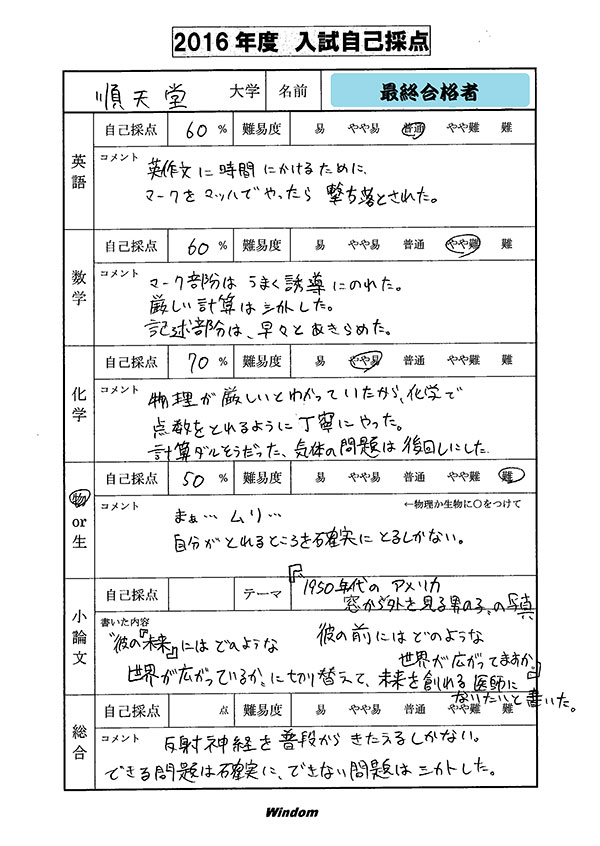 2016年度 入試自己採点
順天堂 大学 名前 最終合格者
英語 自己採点 60 % 難易度 易 やや易 普通 やや難 難
コメント
英作文に時間にかけるために、
マークをマッハでやったら撃ち落とされた。
数学 自己採点 60 % 難易度 易 やや易 普通 やや難 難
コメント
マーク部分はうまく誘導にのれた。
厳しい計算はシカトした。
記述部分は、早々とあきらめた。
化学 自己採点 70 % 難易度 易 やや易 普通 やや難 難
コメント
物理が厳しいとわかっていたから、化学で
点数をとれるように丁寧にやった。
計算ダルそうだった、気体の問題は後回しにした
物 or 生 自己採点 50 % 難易度 易 やや易 普通 やや難 難
コメント ←物理か生物に○をつけて
まぁ… ムリ…
自分がとれるところを確実にとるしかない。
小論文 自己採点 テーマ 『1950年代のアメリカ
窓から外を見る男の子の写真
書いた内容
彼の前にはどのような
世界が広がってますか。』
"彼の『未来』にはどのような
世界が広がっているか"に切り替えて、未来を創れる医師に
なりたいと書いた。
総合 自己採点 点 難易度 易 やや易 普通 やや難 難
コメント
反射神経を普段からきたえるしかない。
できる問題は確実に、できない問題はシカトした。
Windom